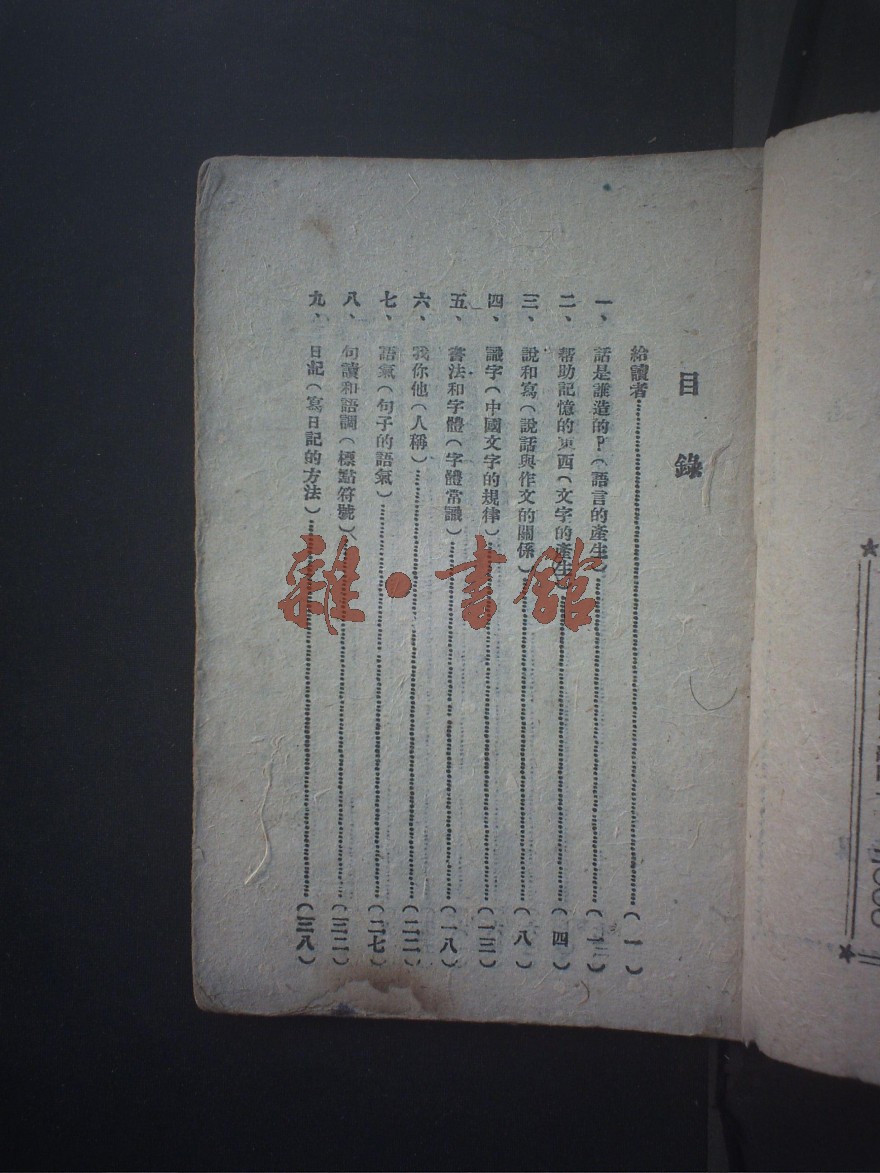 目錄
給讀者……(一)
一、話是誰造的?(語言的產生)……(一)
二、帮助記憶的東西(文字的產生)……(四)
三、說和寫(說話與作文的關係)……(八)
四、識字(中國文字的規律)……(一三)
五、書法和字體(字體常識)……(一八)
六、我你他(人稱)……(二二)
七、語氣(句子的語氣)……(二七)
八、句讀和語調(標點符號)……(三二)
九、日記(寫日記的方法)……(三八)
雜·書館